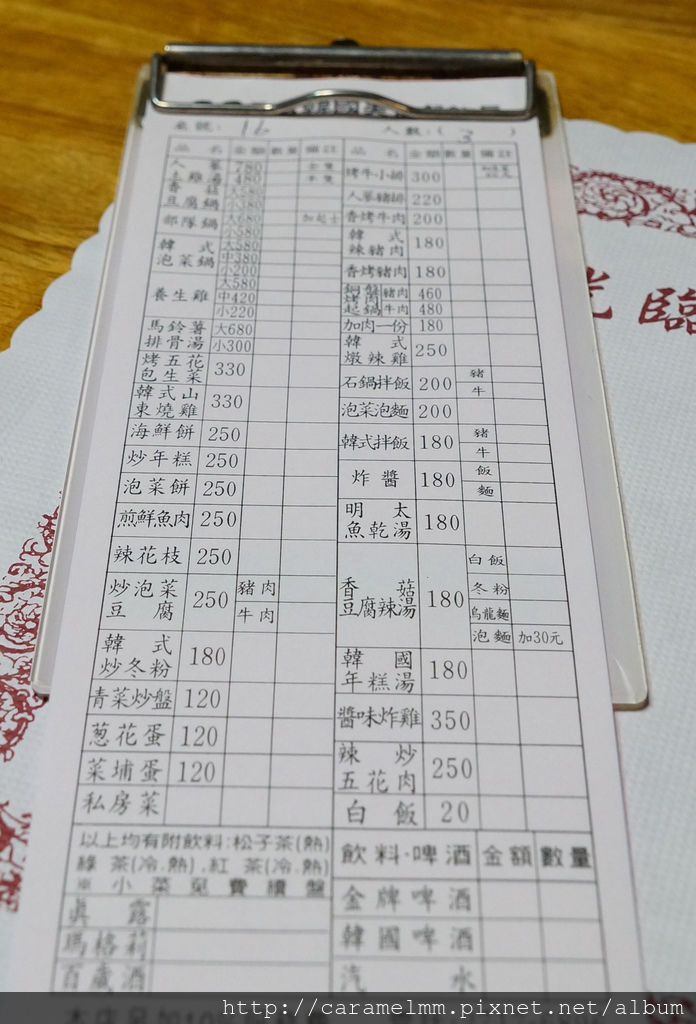 桌號: 16 人數:( 3 )
品名 金額 數量 備註
人蔘土雞湯 780 全隻
480 半隻
香菇豆腐鍋 大580
小380
部隊鍋 大680 加起士
小580
韓式泡菜鍋 大580
中380
小200
養生雞 大580
中420
小220
馬鈴薯排骨湯 大680
小300
烤五花包生菜 330
韓式山東燒雞 330
海鮮餅 250
炒年糕 250
泡菜餅 250
煎鮮魚肉 250
辣花枝 250
炒泡菜豆腐 250 豬肉
牛肉
韓式炒冬粉 180
青菜炒盤 120
葱花蛋 120
菜埔蛋 120
私房菜
以上均有附飲料:松子茶(熱)
綠茶(冷.熱),紅茶(冷.熱)
※小菜免費續盤
真露
瑪格莉
百歲酒
品名 金額 數量 備註
烤牛小排 300
人蔘豬排 220
香烤牛肉 200
韓式辣豬肉 180
香烤豬肉 180
銅盤烤肉起鍋 豬肉 460
牛肉 480
加肉一份 180
韓式燉辣雞 250
石鍋拌飯 200 豬
牛
泡菜泡麵 200
韓式拌飯 180 豬
牛
炸醬 180 飯
麵
明太魚乾湯 180
香菇豆腐辣湯 180 白飯
冬粉
烏龍麵
泡麵 加30元
韓國年糕湯 180
醬味炸雞 350
辣炒五花肉 250
白飯 20
飲料.啤酒 金額 數量
金牌啤酒
韓國啤酒
汽水
光臨
http://caramelmm.pixnet.net/album